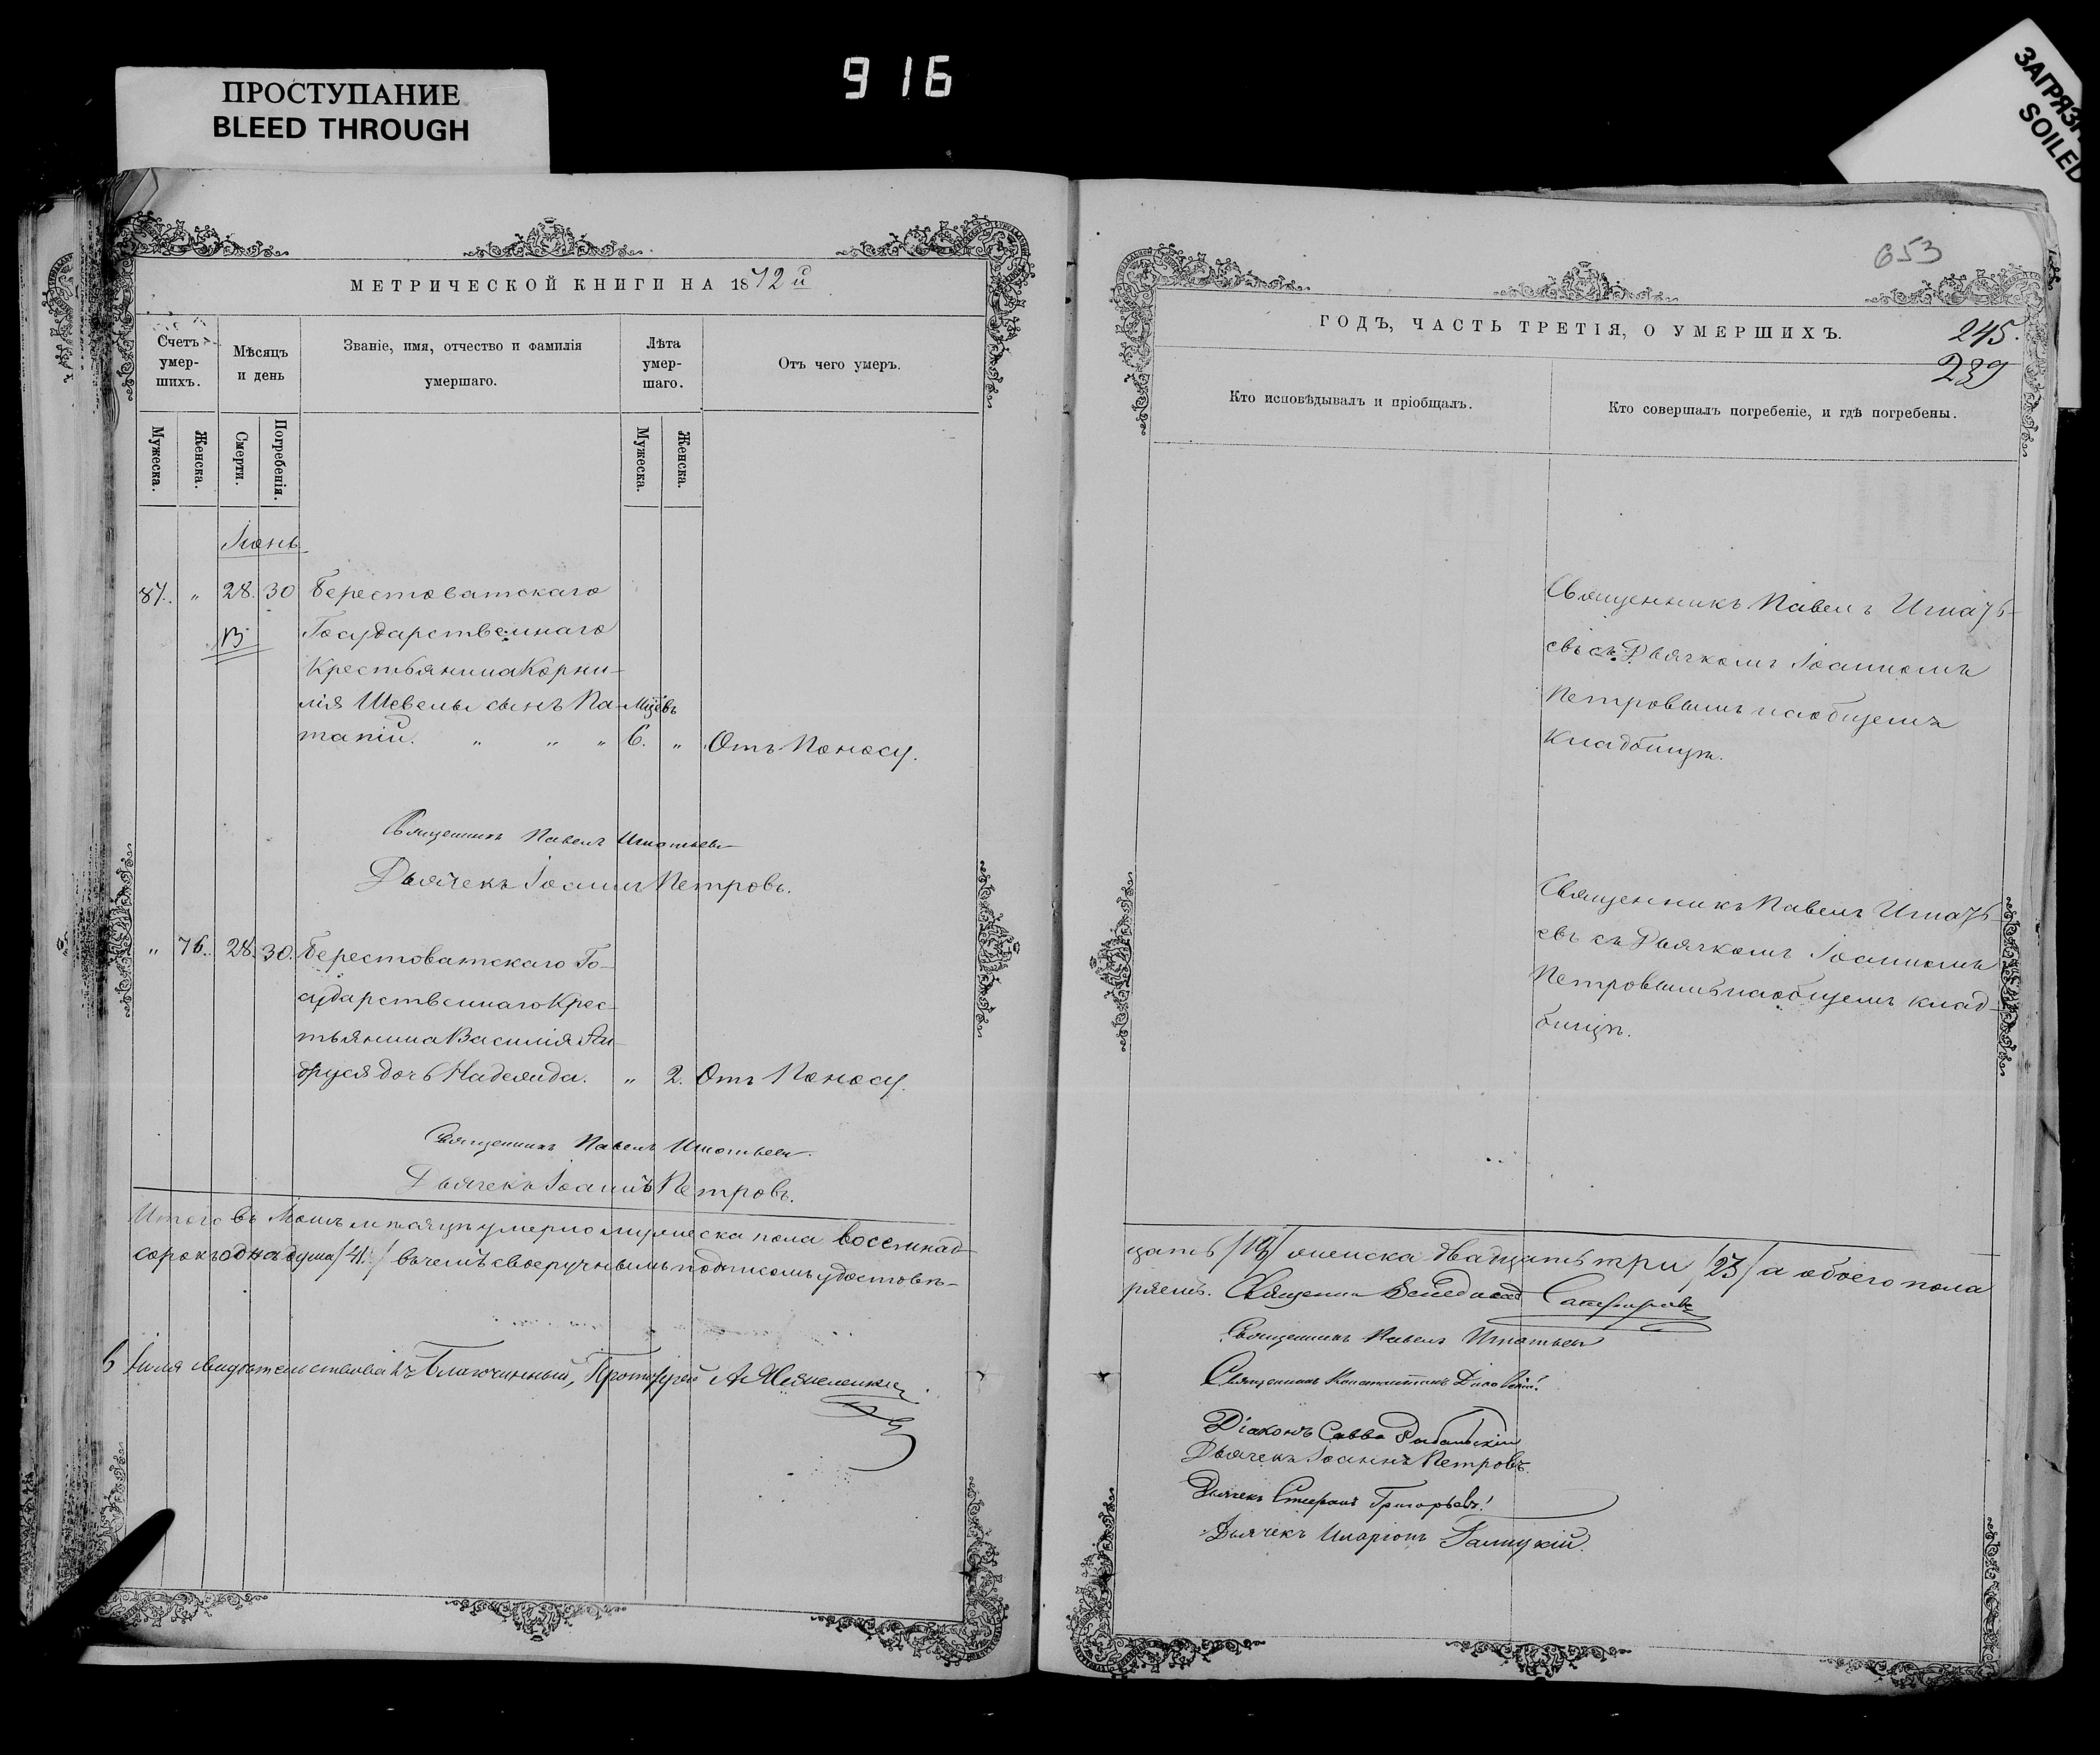 916
ПРОСТУПАНИЕ
BLEED THROUGH
SOILED
МЕТРИЧЕСКОЙ КНИГИ НА 1872 й
Счетъ умер-шихъ.
Мѣсяцъ и день
Званіе, имя, отчество и фамилія умершаго.
Лѣта умер-шаго.
Отъ чего умеръ.
Мужеска.
Женска.
Смерти.
Погребенія.
Мужеска.
Женска.
Іюнь
87. " 28. 30 Берестоватскаго
Государственнаго
Крестьянина Корни-
лія Шевелы сынъ Па-
тапій. " " " 6. " Отъ Поносу.
Священникъ Павелъ Игнатьевъ
Дьячекъ Іоаннъ Петровъ.
" 76. 28. 30. Берестоватскаго Го-
сударственнаго Крес-
тьянина Василія
дочь Надежда. " 2. Отъ Поносу.
Священникъ Павелъ Игнатьевъ
Дьячекъ Іоаннъ Петровъ.
Итого въ Іюнѣ мѣсяцѣ умерло мужеска пола восемнад-
сорокъ одна душа /41./ въ чемъ своеручнымъ подписомъ удостовѣ-
свидѣтельствовалъ Благочинный, Протоіерей А.
653
ГОДЪ, ЧАСТЬ ТРЕТІЯ, О УМЕРШИХЪ.
245.
239
Кто исповѣдывалъ и пріобщалъ.
Кто совершалъ погребеніе, и гдѣ погребены.
Священникъ Павелъ Игнать-
евъ съ Дьячкомъ Іоанномъ
Петровымъ на общемъ
кладбищѣ.
Священникъ Павелъ Игнать-
евъ съ Дьячкомъ Іоанномъ
Петровымъ на общемъ клад-
бищѣ.
цать /18/ женска двадцать три /23/ а обоего пола
ряемъ. Священникъ
Священникъ Павелъ Игнатьевъ
Священникъ Константинъ
Діаконъ Савва Рыбальскій
Дьячекъ Іоаннъ Петровъ.
Дьячекъ Стефанъ Григорьевъ!
Дьячекъ Иларіонъ Галицкій.